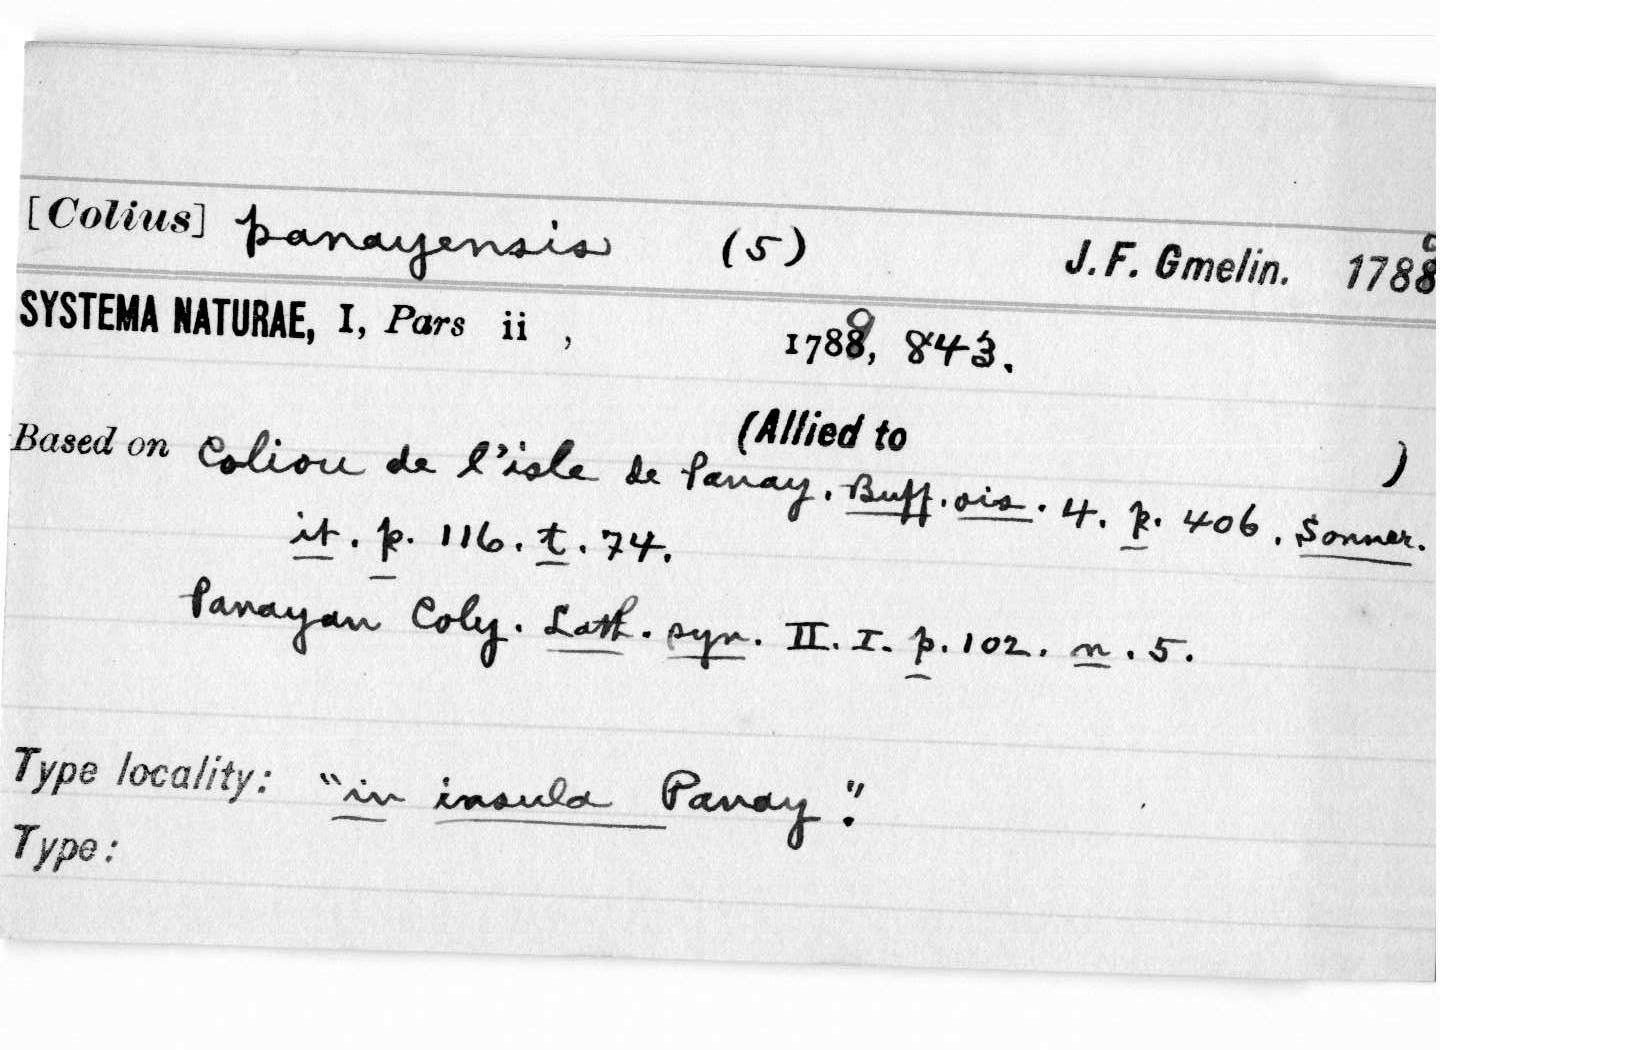 [Colius] panayensis (5) J. F. Gmelin. 1789
SYSTEMA NATURAE, I, Pars ii , 1789, 843.
(Allied to )
Based on Coliou de l'isle de Panay. Buff. ois. 4. p. 406. Sonner.
it. p. 116. t. 74.
Panayan Coly. Lath. syn. II. I. p. 102. n. 5.
Type locality: "in insula Panay".
Type: